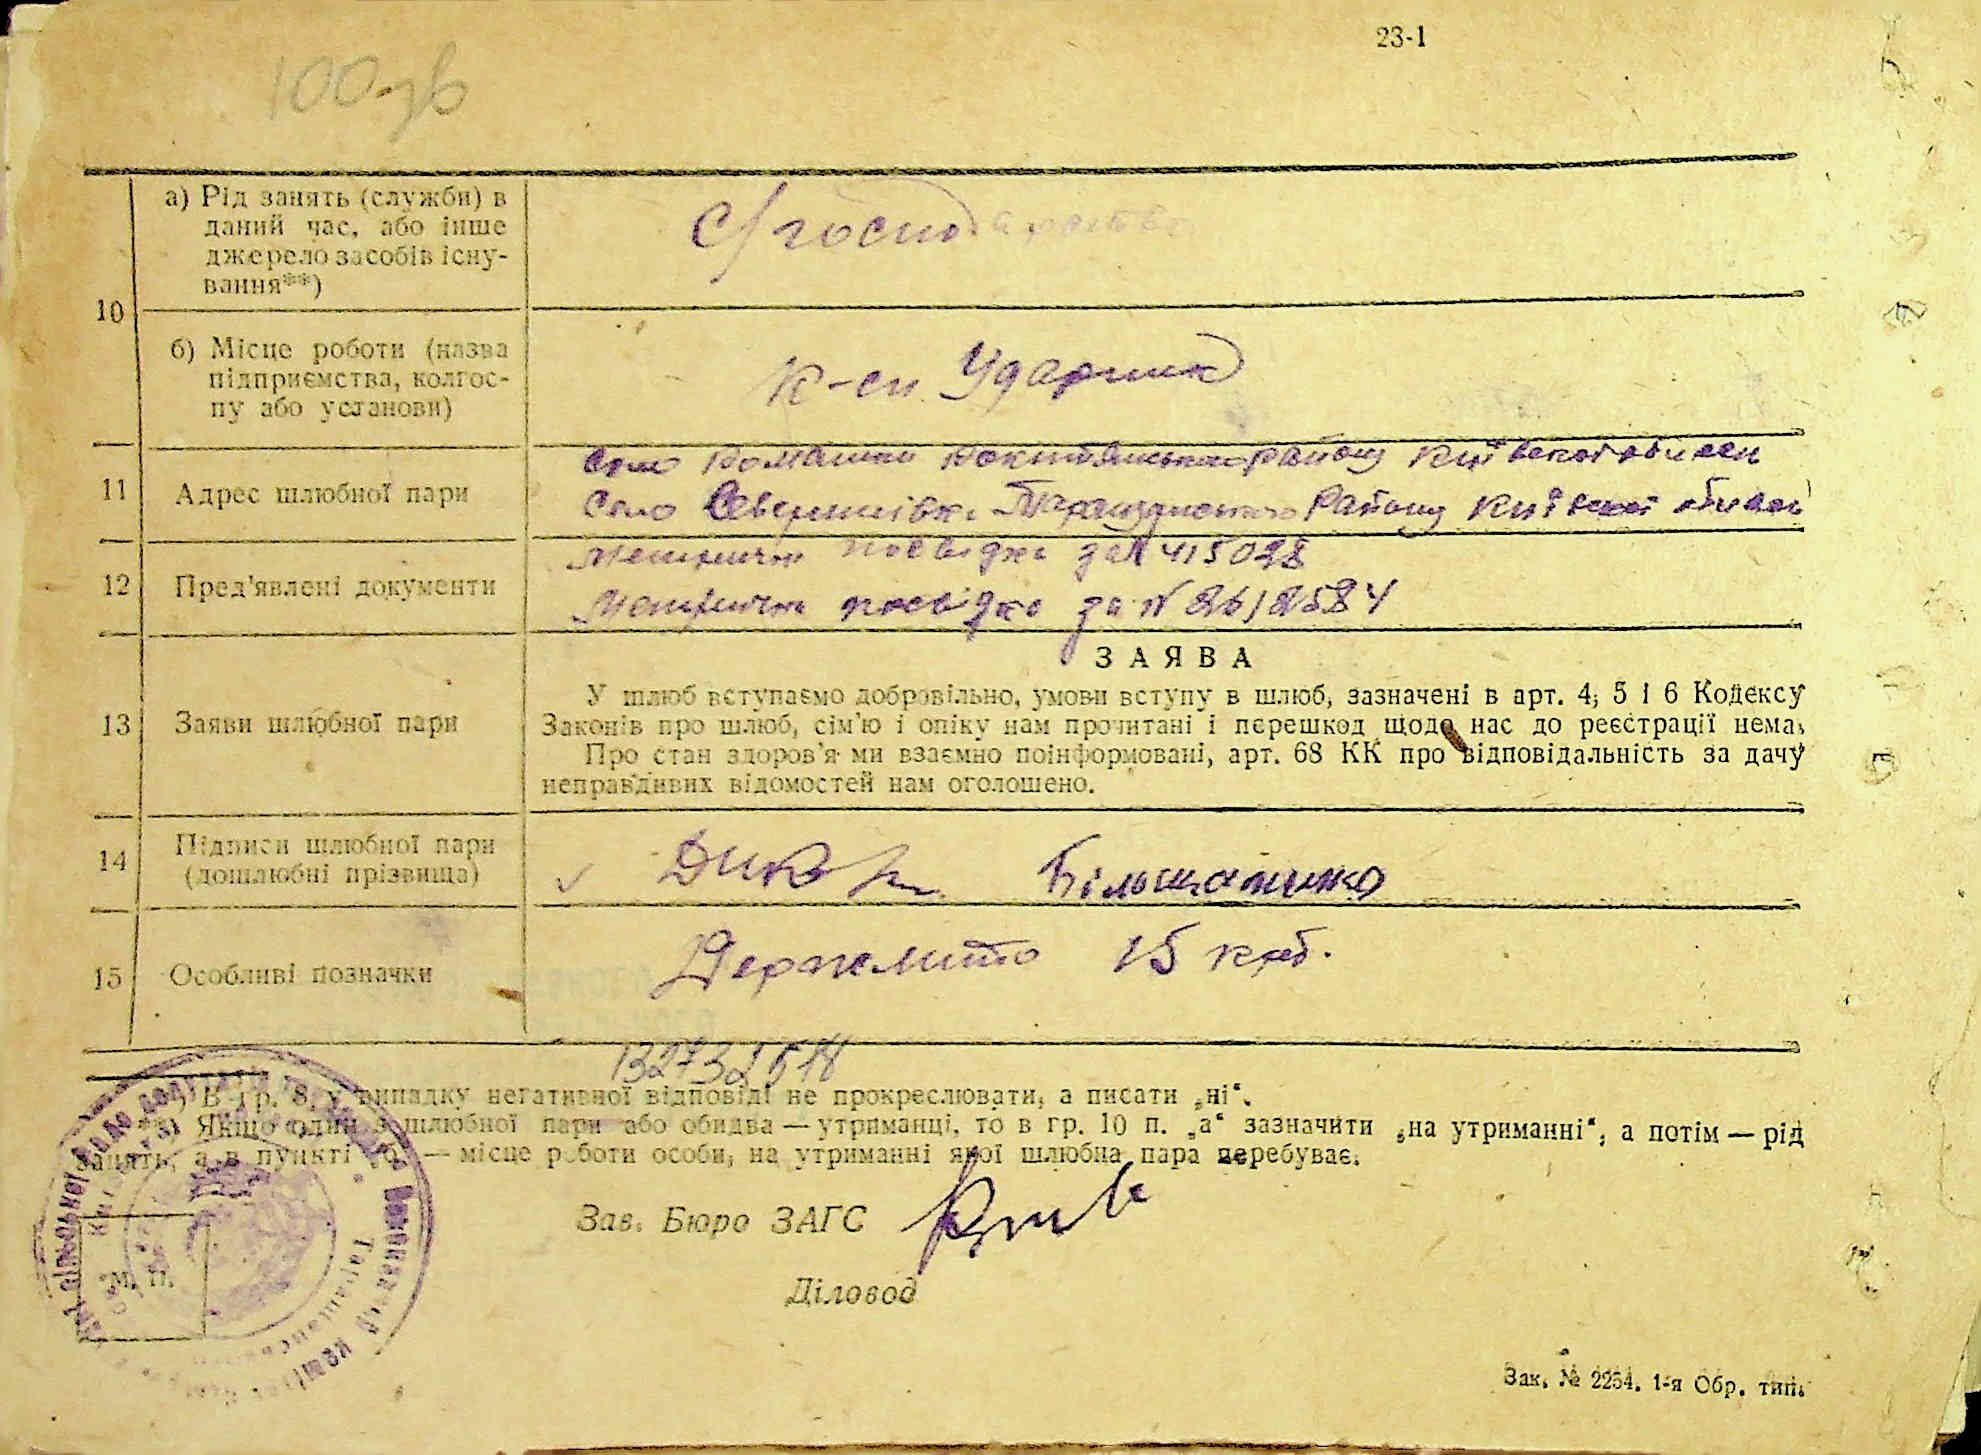 23-1
100 зв
10
а) Рід занять (служби) в
даний час, або інше
джерело засобів існу-
вання**)
С/господарство
б) Місце роботи (назва
підприємства, колгос-
пу або установи)
к-сп Ударник
11
Адрес шлюбної пари
село Ромашки Рокитянського району Київської області
село Северинівка Таращанського Району Київської області
12
Пред'явлені документи
посвідка за № 415028
посвідка за №
13
Заяви шлюбної пари
ЗАЯВА
У шлюб вступаємо добровільно, умови вступу в шлюб, зазначені в арт. 4, 5 і 6 Кодексу
Законів про шлюб, сім'ю і опіку нам прочитані і перешкод щодо нас до реєстрації нема.
Про стан здоров'я ми взаємно поінформовані, арт. 68 КК про відповідальність за дачу
неправдивих відомостей нам оголошено.
14
Підписи шлюбної пари
(дошлюбні прізвища)
Більшанико
15
Особливі позначки
Держмито 15 крб.
*) В гр. 8, у випадку негативної відповіді не прокреслювати, а писати „ні“.
**) Якщо один з шлюбної пари або обидва — утриманці, то в гр. 10 п. „а“ зазначити „на утриманні“, а потім — рід
занять, а в пункті „б“ — місце роботи особи, на утриманні якої шлюбна пара перебуває.
Зав. Бюро ЗАГС
М. П.
Діловод
Зак. № 2254. 1-я Обр. тип.